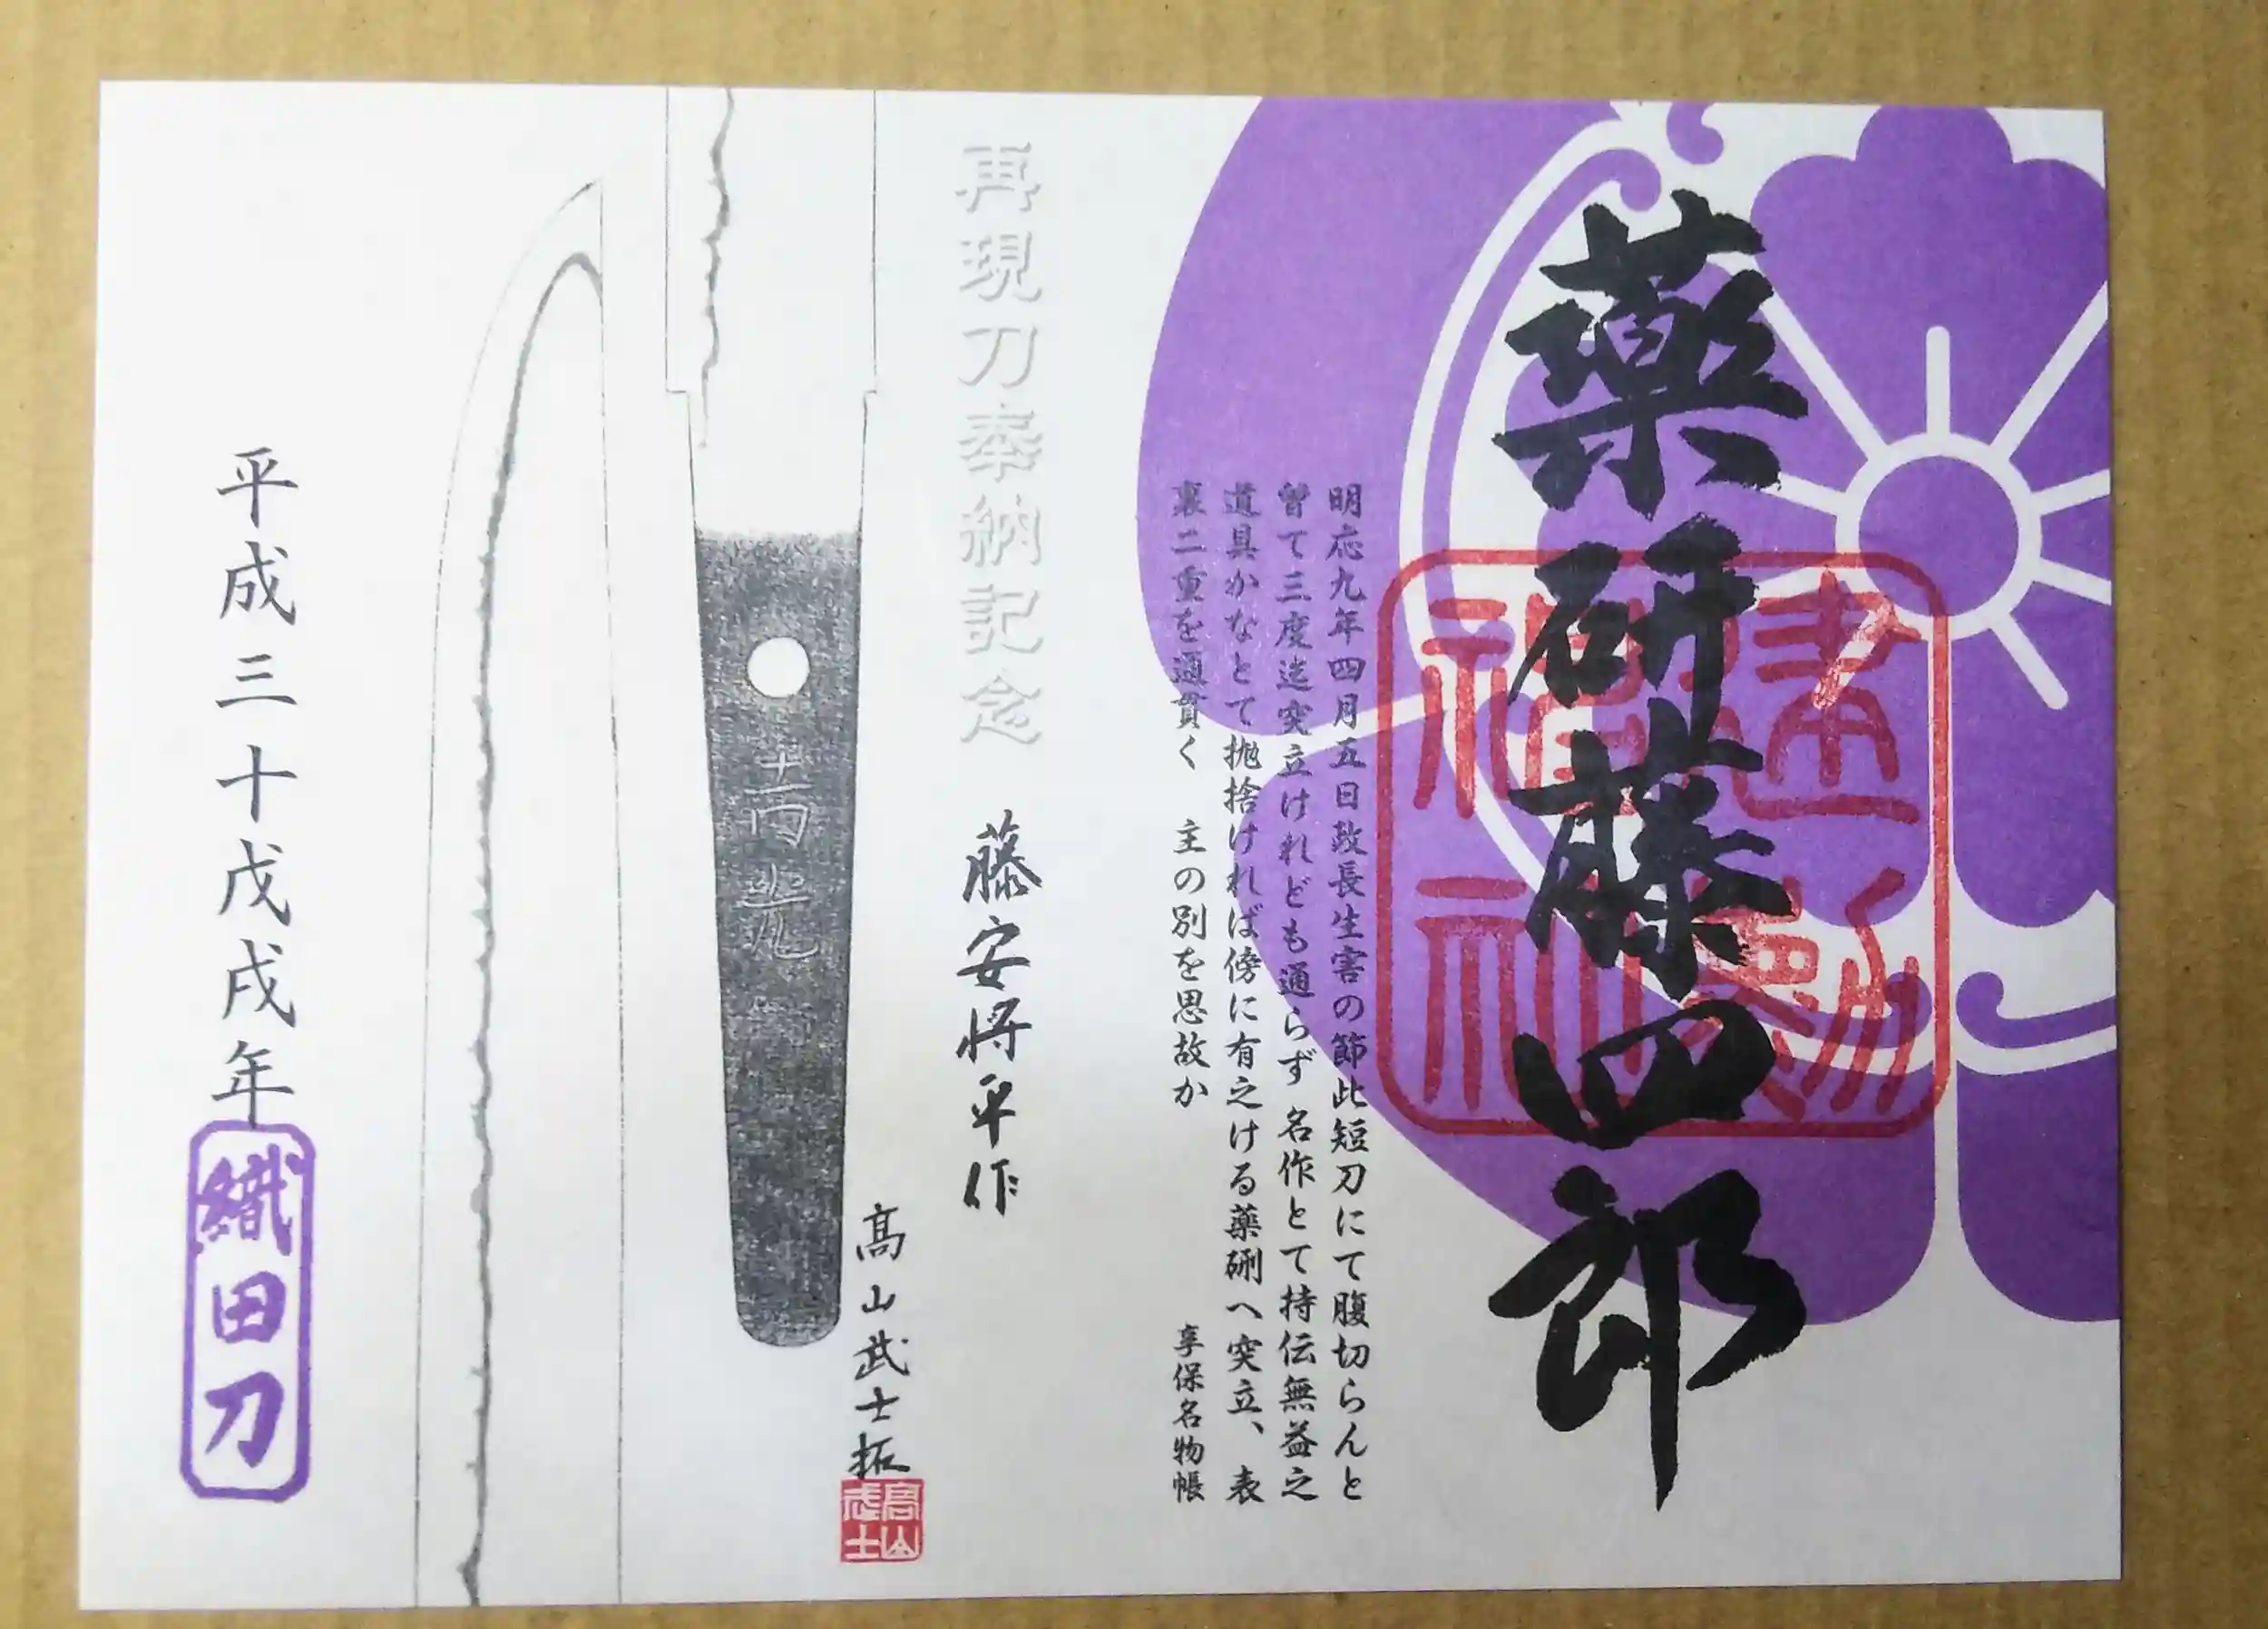 薬研藤四郎
建勲神社
明応九年四月五日政長生害の節此短刀にて腹切らんと
曾て三度迄突立けれども通らず 名作とて持伝無益之
道具かなとて抛捨ければ傍に有之ける薬研へ突立、表
裏二重を通貫く 主の別を思故か
享保名物帳
再現刀奉納記念
藤安将平作
吉光
髙山武士拓
髙山武士
平成三十戊戌年
織田刀